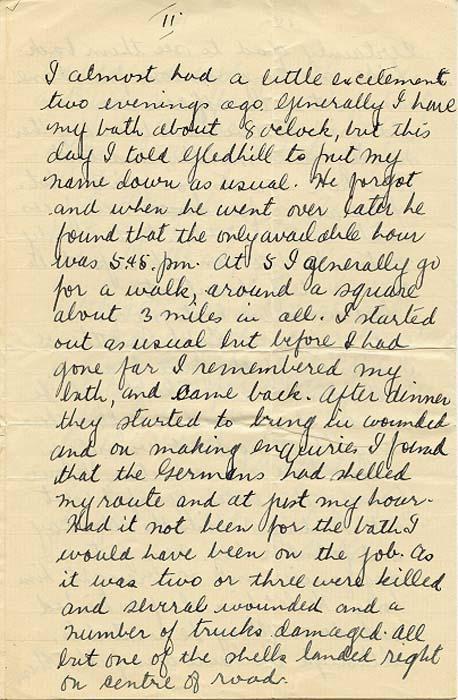 II
I almost had a little excitement
two evenings ago. Generally I have
my bath about 8 oclock, but this
day I told Gledhill to put my
name down as usual. He forgot
and when he went over later he
found that the only available hour
was 5.45. pm. At 5 I generally go
for a walk, around a square
about 3 miles in all. I started
out as usual but before I had
gone far I remembered my
bath, and came back. After dinner
they started to bring in wounded
and on making enquiries I found
that the Germans had shelled
my route and at just my hour.
Had it not been for the bath I
would have been on the job. As
it was two or three were killed
and several wounded and a
number of trucks damaged. All
but one of the shells landed right
on centre of road.